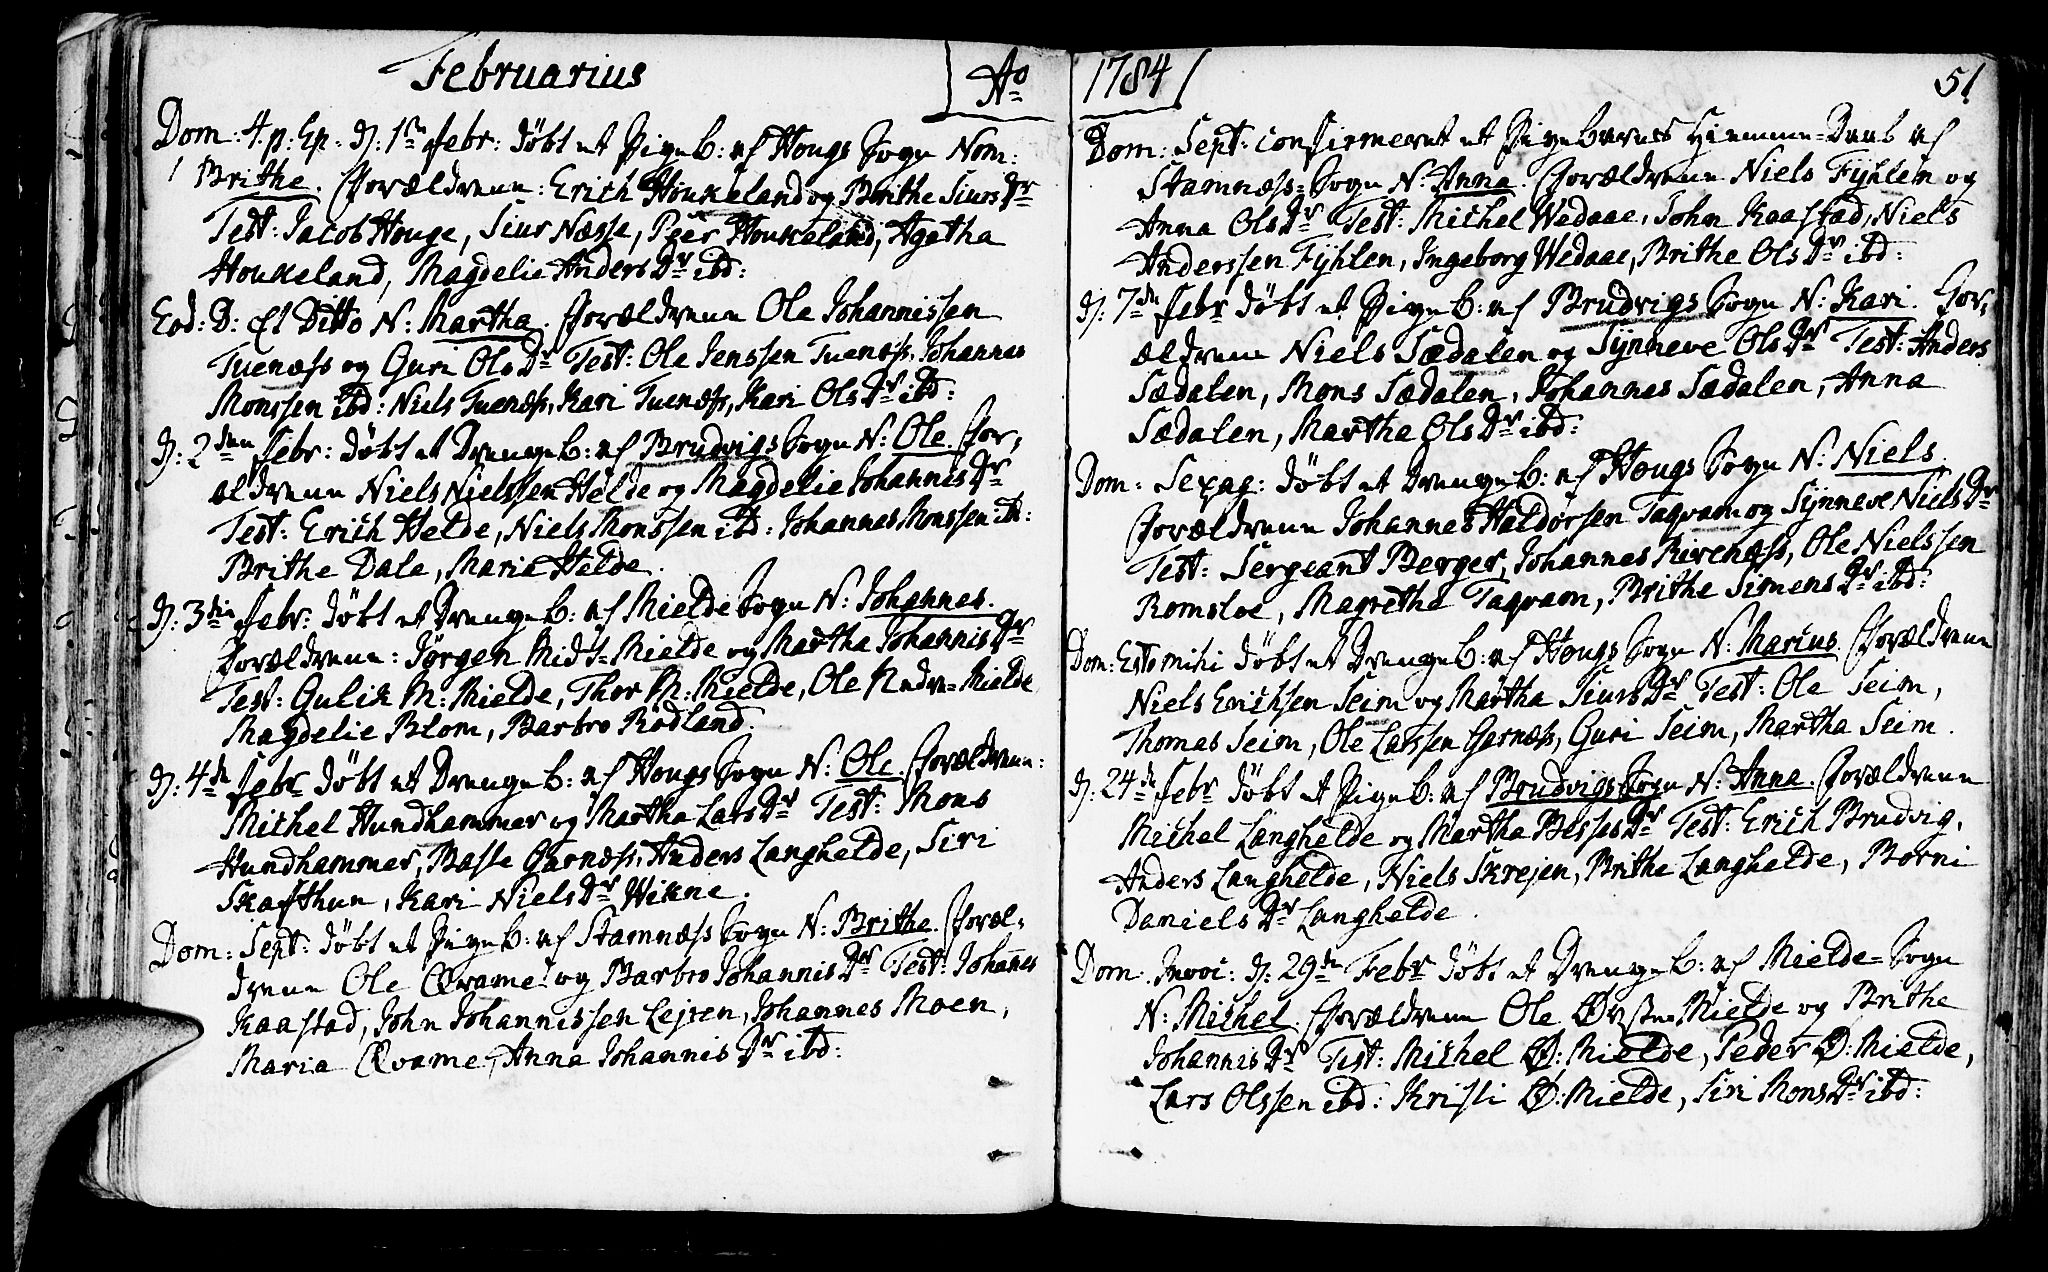 Februarius
Ao
Dom: 4. p: Ep. D: 1ste Febr: döbt et PigeB: af Hougs Sogn Nom:
Brithe. Forældrene: Erich Houkeland og Brithe Siurs Dr
Test: Jacob Houge, Siur Næsse, Peer Houkeland, Agatha
Houkeland, Magdelie Anders Dr ibd:
Eod: D: et Ditto N: Martha. Forældrene Ole Johannissen
Tuenæss og Guri Ols Dr Test: Ole Jenssen Tuenæss, Johannes
Monssen ibd: Niels Tuenæss, Kari Tuenæss, Kari Ols Dr ibd:
D: 2den Febr: döbt et DrengeB: af Brudvigs Sogn N: Ole. For,
ældrene Niels Nielssen Helde og Magdelie Johannis Dr
Test: Erich Helde, Niels Monssen ibd: Johannes Monssen ib:
Brithe Dale, Maria Helde.
D: 3die Febr: döbt et DrengeB: af Mielde Sogn N: Johannes.
Forældrene: Jörgen Midt-Mielde og Martha Johannis Dr
Test: Gulik M: Mielde, Thor M: Mielde, Ole Nedre-Mielde
Magdelie Blom, Barbro Rödland.
D: 4de Febr döbt et DrengeB: af Hougs Sogn N: Ole. Forældrene:
Michel Hundhammer og Martha Lars Dr Test: Mons
Hundhammer, Basse Garnæss, Anders Langhelde, Siri
Skafthun, Kari Niels Dr Wikne.
Dom: Sept: döbt et PigeB: af Stamnæss Sogn N: Brithe. Foræl-
drene Ole Qvame og Barbro Johannis Dr Test: Johanes
Kaastad, John Johannissen Lejren, Johannes Moen,
Maria Qvame, Anna Johannis Dr ibd:
1784
51
Dom: Sept: confirmeret et Pigebarns Hiemme-Daab af
Stamnæss-Sogn N: Anna. Forældrene Niels Fyhlen og
Anna Ols Dr Test: Michel Wedaae, John Kaastad, Niels
Anderssen Fyhlen, Ingeborg Wedaae, Brithe Ols Dr ibd:
D: 7de Febr döbt et PigeB: af Brudvigs Sogn N: Kari. For,
ældrene Niels Sædalen og Synneve Ols Dr Test: Anders
Sædalen, Mons Sædalen, Johannes Sædalen, Anna
Sædalen, Martha Ols Dr ibd:
Dom: Sexag: döbt et DrengeB: af Hougs Sogn N: Niels.
Forældrene Johannes Haldorsen Taqvam og Synneve Niels Dr
Test: Sergeant Berger, Johannes Rivenæss, Ole Nielssen
Romsloe, Magrethe Taqvam, Brithe Simens Dr ibd:
Dom: Esto mihi döbt et DrengeB: af Hougs Sogn N: Marius. Forældrene
Niels Erichsen Seim og Martha Siurs Dr Test: Ole Seim,
Thomas Seim, Ole Larssen Garnæss, Guri Seim, Martha Seim.
D: 24de Febr döbt et PigeB: af Brudvigs Sogn N: Anna. Forældrene
Michel Langhelde og Martha Besses Dr Test: Erich Brudvig,
Anders Langhelde, Niels Skrejen, Brithe Langhelde, Borni
Daniels Dr Langhelde.
Dom. Invoc: D: 29de Febr döbt et DrengeB: af Mielde-Sogn
N: Michel. Forældrene Ole Øvste-Mielde og Brithe
Johannis Dr Test: Michel Ø: Mielde, Peder Ø: Mielde,
Lars Olssen ibd: Kristi Ø: Mielde, Siri Mons Dr ibd: